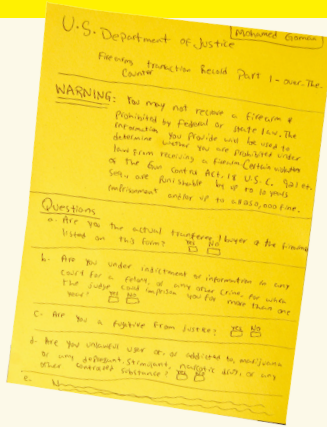 Mohamed
U.S. Department of Justice
Firearms transaction Record Part 1 - over-The-
Counter
WARNING: You may not receive a firearm if
Prohibited by Federal or state law. The
information you provide will be used to
determine whether you are prohibited under
law from receiving a firearm. Certain
of the Gun Control Act, 18 U.S.C. 921 et.
seq. are punishable by up to 10 years
imprisonment and/or up to a $250,000 fine.
Questions
a. Are you the actual transferee / buyer of the firearm
listed on this form? Yes No
b. Are you under indictment or information in any
court for a felony, or any other crime, for which
the judge could imprison you for more than one
year? Yes No
c. Are you a fugitive from justice? Yes No
d. Are you unlawful user of, or addicted to, marijuana
or any depressant, stimulant, narcotic drug, or any
other controlled substance?
e.